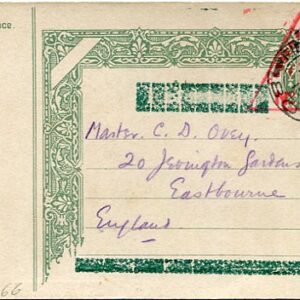 nce.
Master. C. D. Ovey.
20 Jevington Gardens
Eastbourne
England
66